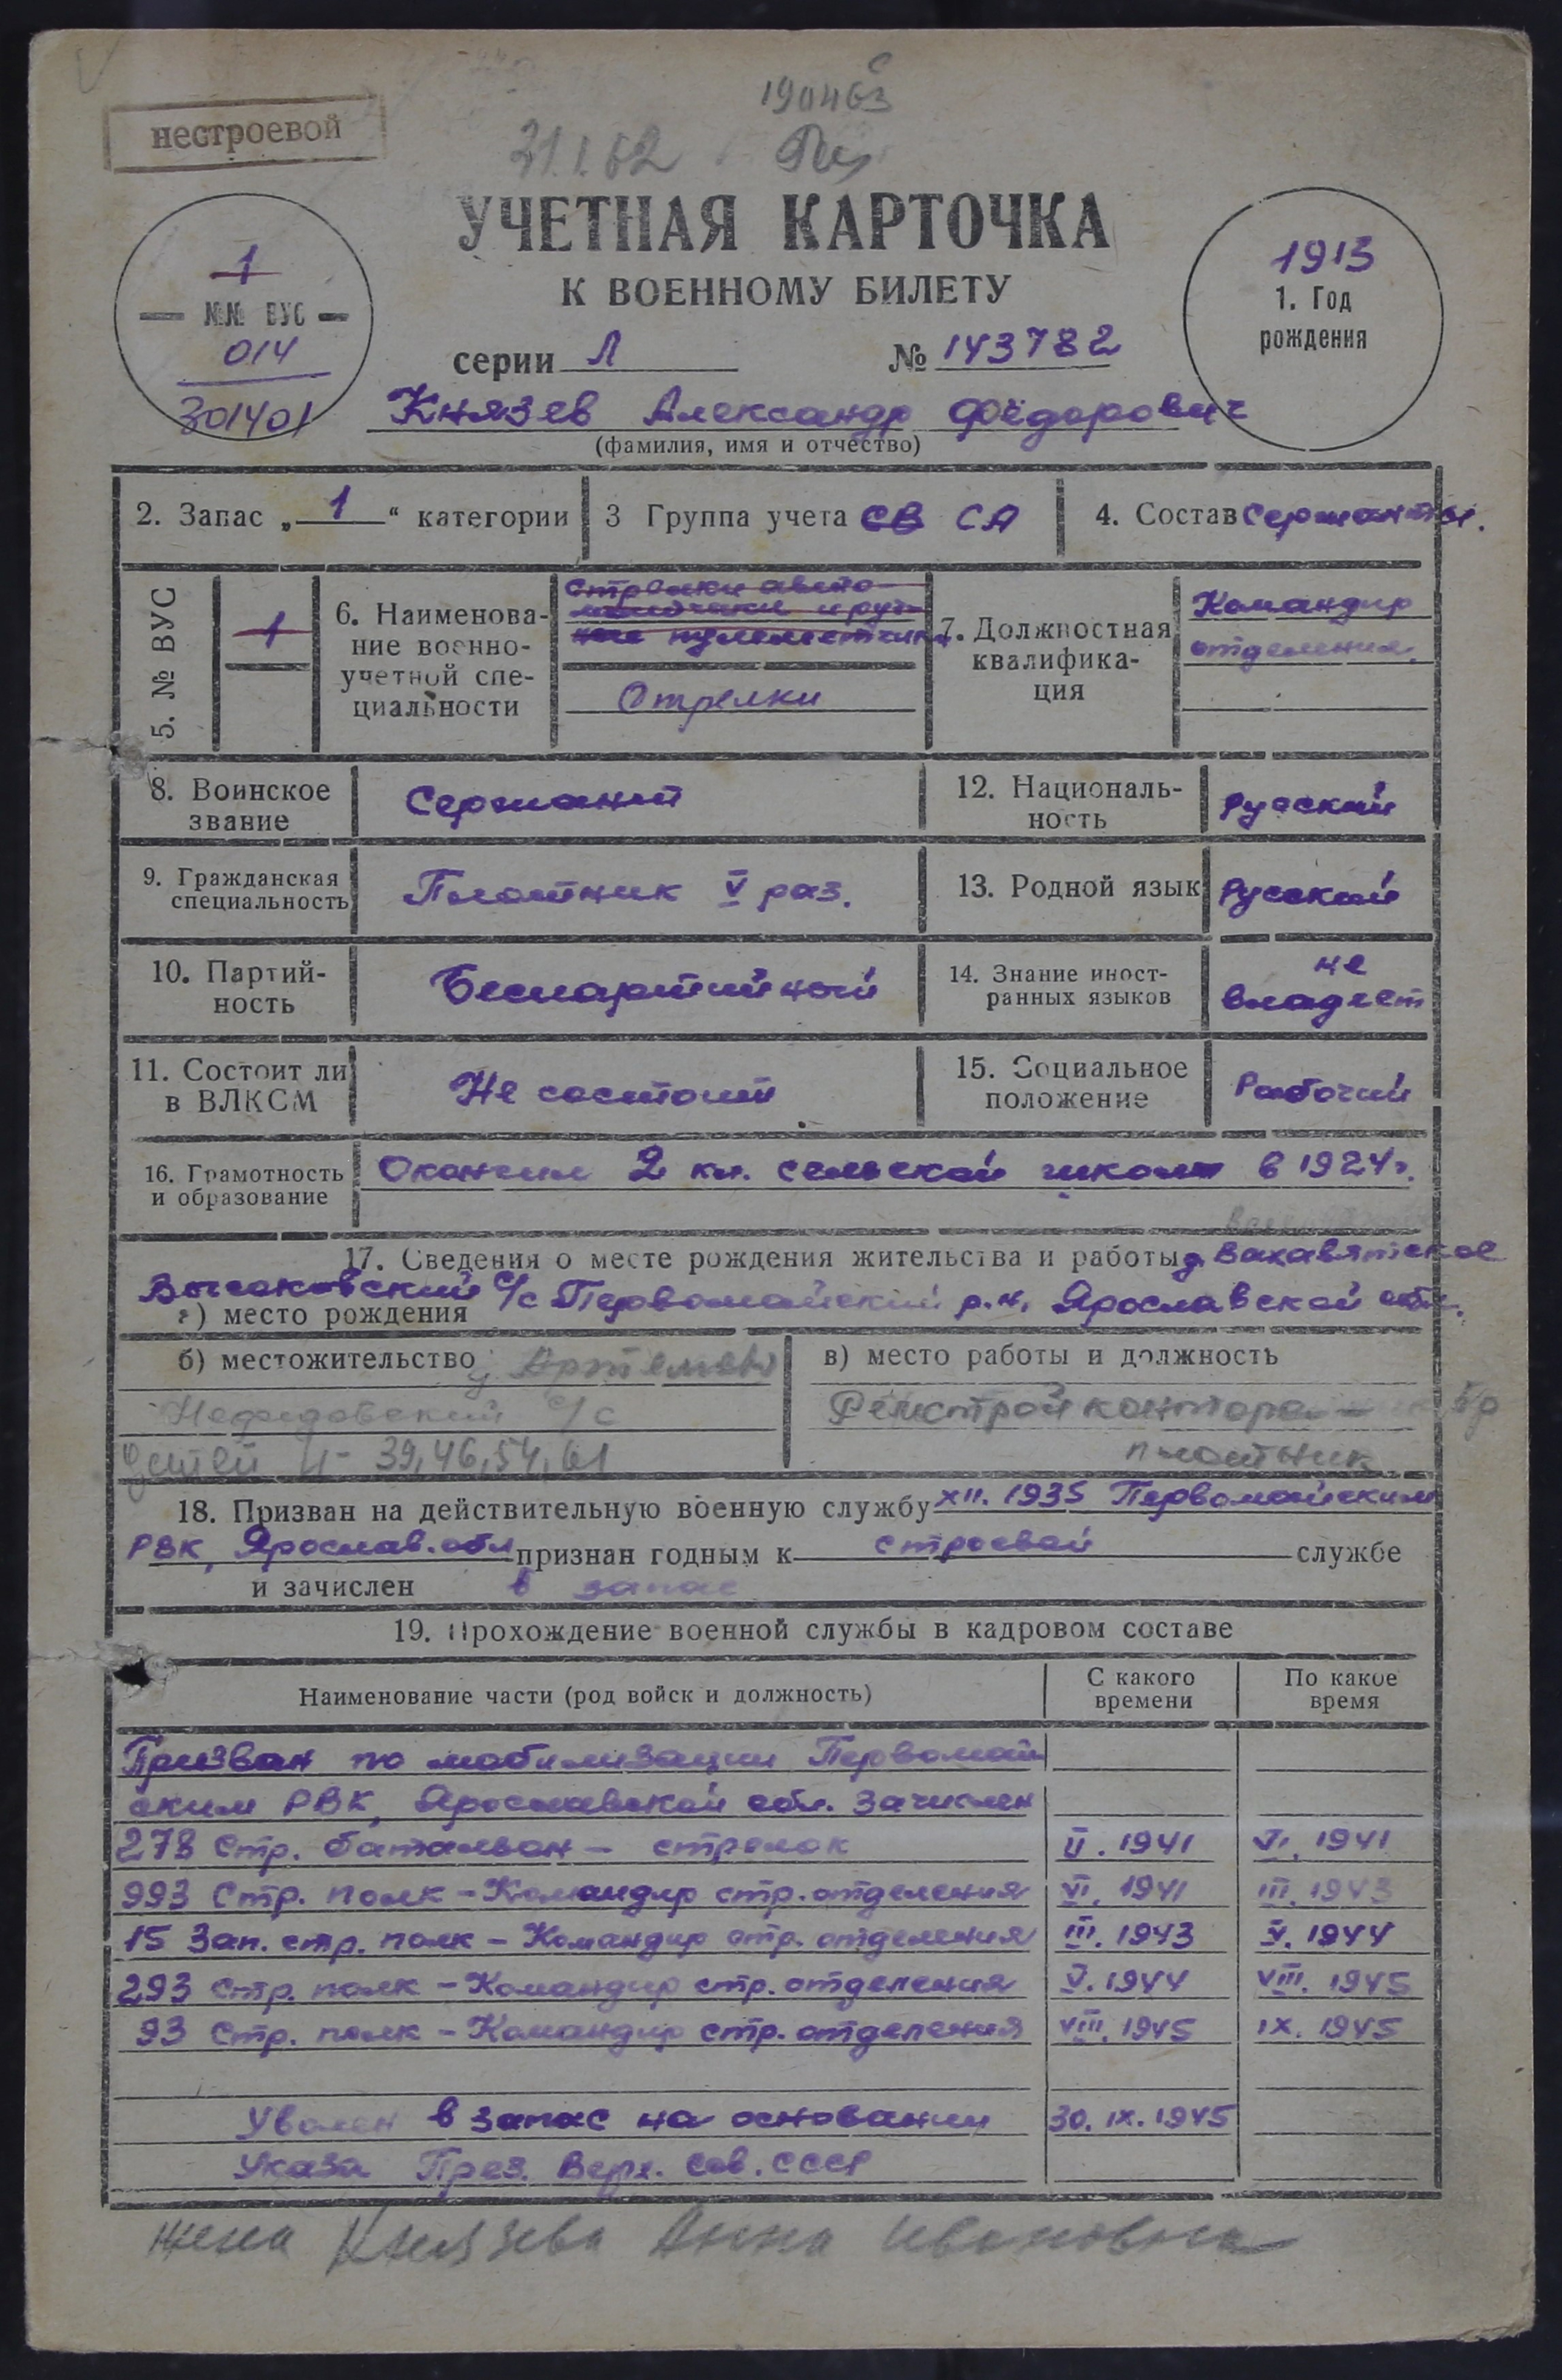 190463
нестроевой
31.1.62
УЧЕТНАЯ КАРТОЧКА
К ВОЕННОМУ БИЛЕТУ
1
№№ ВУС
014
301401
1913
1. Год
рождения
серии Л № 143782
Князев Александр Фёдорович
(фамилия, имя и отчество)
2. Запас „ 1 “ категории
3 Группа учета СВ СА
4. Состав Сержанты.
5. № ВУС
1
6. Наименова-
ние военно-
учетной спе-
циальности
Стрелки авто-
матчики и руч-
ные пулеметчики
Стрелки
7. Должностная
квалифика-
ция
Командир
отделения.
8. Воинское
звание
Сержант
12. Националь-
ность
Русский
9. Гражданская
специальность
Плотник V раз.
13. Родной язык
Русский
10. Партий-
ность
Беспартийный
14. Знание иност-
ранных языков
не
владеет
11. Состоит ли
в ВЛКСМ
Не состоит
15. Социальное
положение
Рабочий
16. Грамотность
и образование
Окончил 2 кл. сельской школы в 1924г.
17. Сведения о месте рождения жительства и работы д. Вахавятское
с/с Первомайский р.н, Ярославской обл.
а) место рождения
б) местожительство
с/с
детей 4- 39,46,54,61
в) место работы и должность
Ремстройконтора —
плотник
18. Призван на действительную военную службу XII. 1935 Первомайским
РВК, Ярослав. обл признан годным к строевой службе
и зачислен в запас
19. Прохождение военной службы в кадровом составе
Наименование части (род войск и должность)
С какого
времени
По какое
время
Призван по мобилизации Первомай
ским РВК, Ярославской обл. зачислен
278 Стр. батальон – стрелок II. 1941 VI. 1941
993 Стр. полк – Командир стр. отделения VI. 1941 III. 1943
15 Зап. стр. полк – Командир стр. отделения III. 1943 V. 1944
293 Стр. полк – Командир стр. отделения V. 1944 VIII. 1945
93 Стр. полк – Командир стр. отделения VIII. 1945 IX. 1945
Уволен в запас на основании 30. IX. 1945
Указа През. Верх. Сов. СССР
жена Князева Анна Ивановна